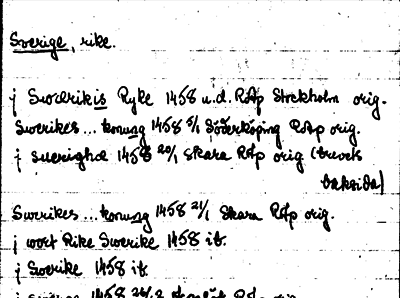 Sverige, rike.
j Swerikis Ryke 1458 u.d. RAp Stockholm orig.
Swerikes... konung 1458 5/1 Söderköping RAp orig.
j suerighæ 1458 20/1 Skara RAp orig (brevets
baksida)
Swerikes... konung 1458 21/1 Skara RAp orig.
j wort Rike Swerike 1458 ib.
j Swerike 1458 ib.
1458 RAp orig